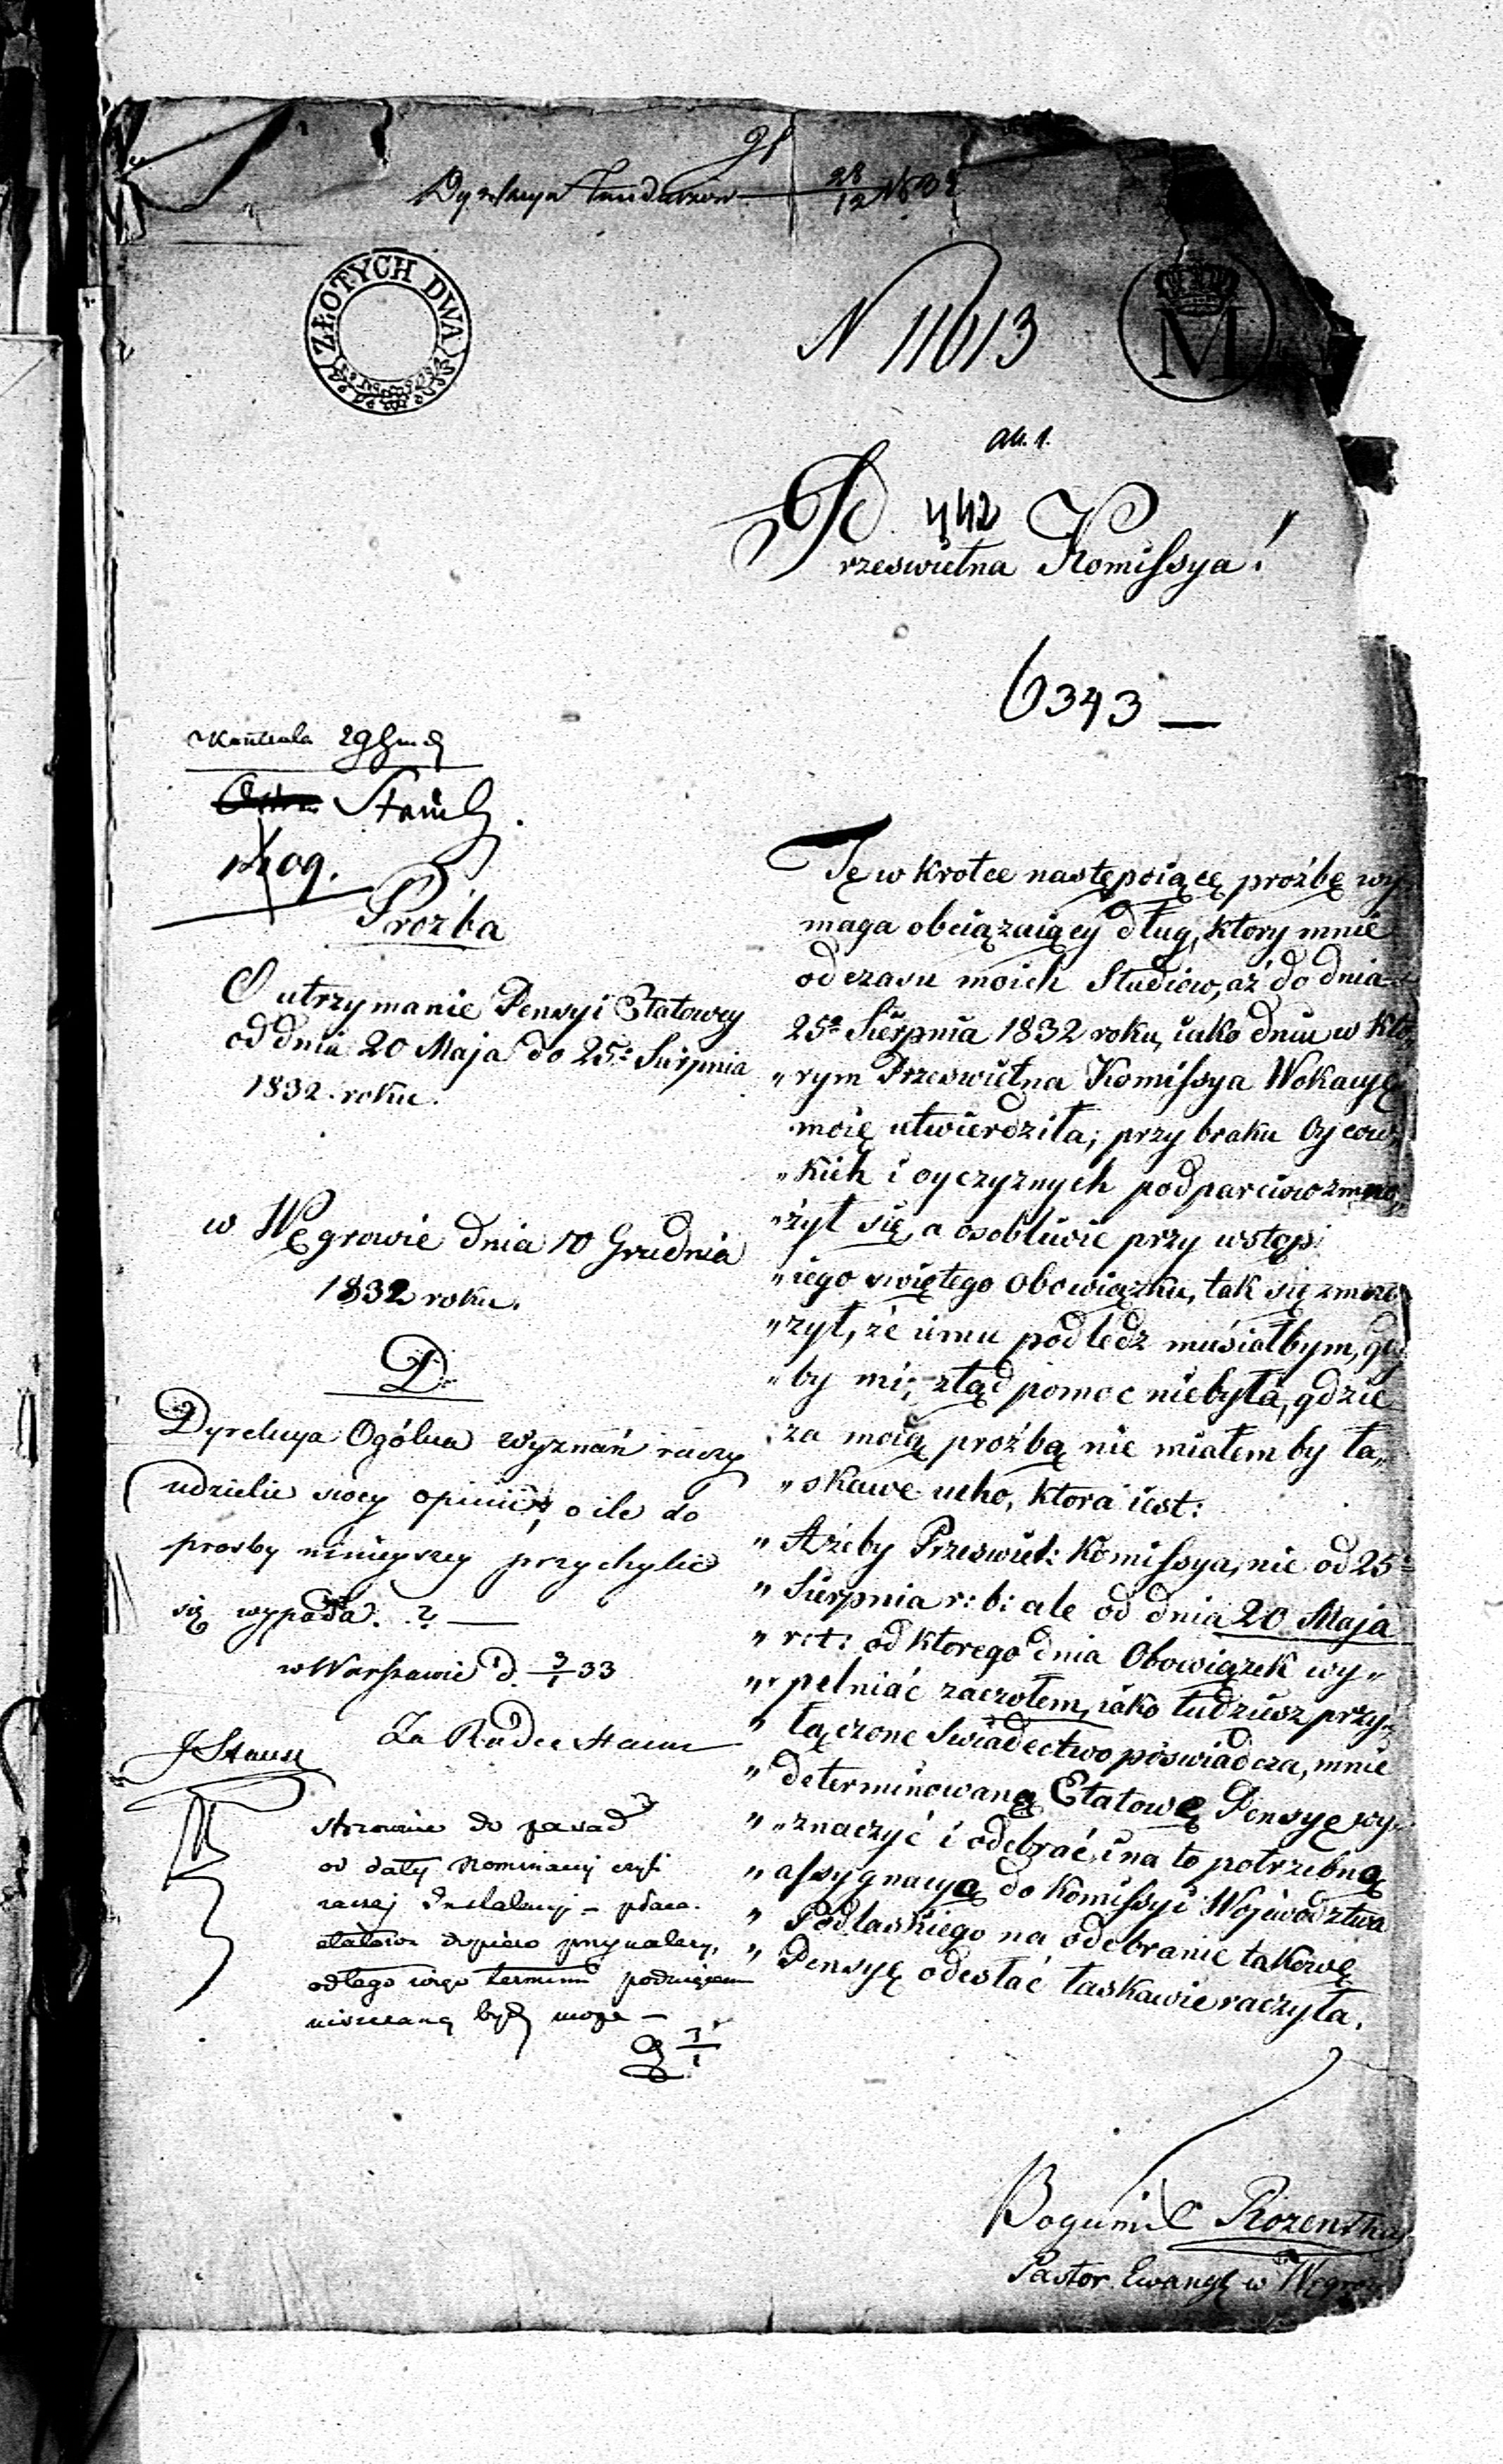 Dyrekcya Funduszow 28/12 1832
ZŁOTYCH DWA
N 11613
M
ad. 1.
442
Przeswietna Komissya!
6343 —
Kontrola 29
Prozba
O utrzymanie Pensyi Etatowey
od dnia 20 Maja do 25º Sierpnia
1832 roku.
w Węgrowie dnia 10 Grudnia
1832 roku.
D
Dyrekcya Ogólna Wyznań raczy
udzielić swey opinii, o ile do
prosby ninieyszey przychylić
się wypada. ? —
w Warszawie d. 3/1 33
Za Radcę Stanu
Stosownie do zasad
od daty Nominacyi czyli
raczej Instalacyi – płaca
etatowa dopiero przynależy,
od tego więc terminu
być może —
Tę w krotce następoiącę proźbę wy
maga obciązaiący dług, ktory mnie
od czasu moich Studiow, aź do dnia
25º Sierpnia 1832 roku, iako dniu w kto„
„rym Przeswietna Komissya Wokacyę
moię utwierdziła; przy braku Oycow„
„kich i oyczyznych podparciow zmno„
„żył się, a osobliwie przy wstęp
„iego swiętego obowiązku, tak się zmno
„żył, że iemu podledz musiałbym, gdy
„by mi, ztąd pomoc niebyła, gdzie
za moią proźbą nie miałem by ła„
„skawe ucho, ktora iest:
„Ażeby Przeswiet: Komissya, nie od 25º
„Sierpnia r: b: ale od dnia 20 Maja
„r: t: od ktorego dnia Obowiązek wy„
„pełniać zaczołem, iako tudziesz przy„
„łączone Swiadectwo poswiadcza, mnie
„determinowaną Etatowę Pensyę wy„
„znaczyć i odebrać, i na to potrzebną
„assygnacyą do Komissyi Wojewodztwa
„Podlaskiego na odebranie takowę
„Pensyę odesłać łaskawie raczyła.
Bogumił Rozentha
Pastor Ewang: w Węgro